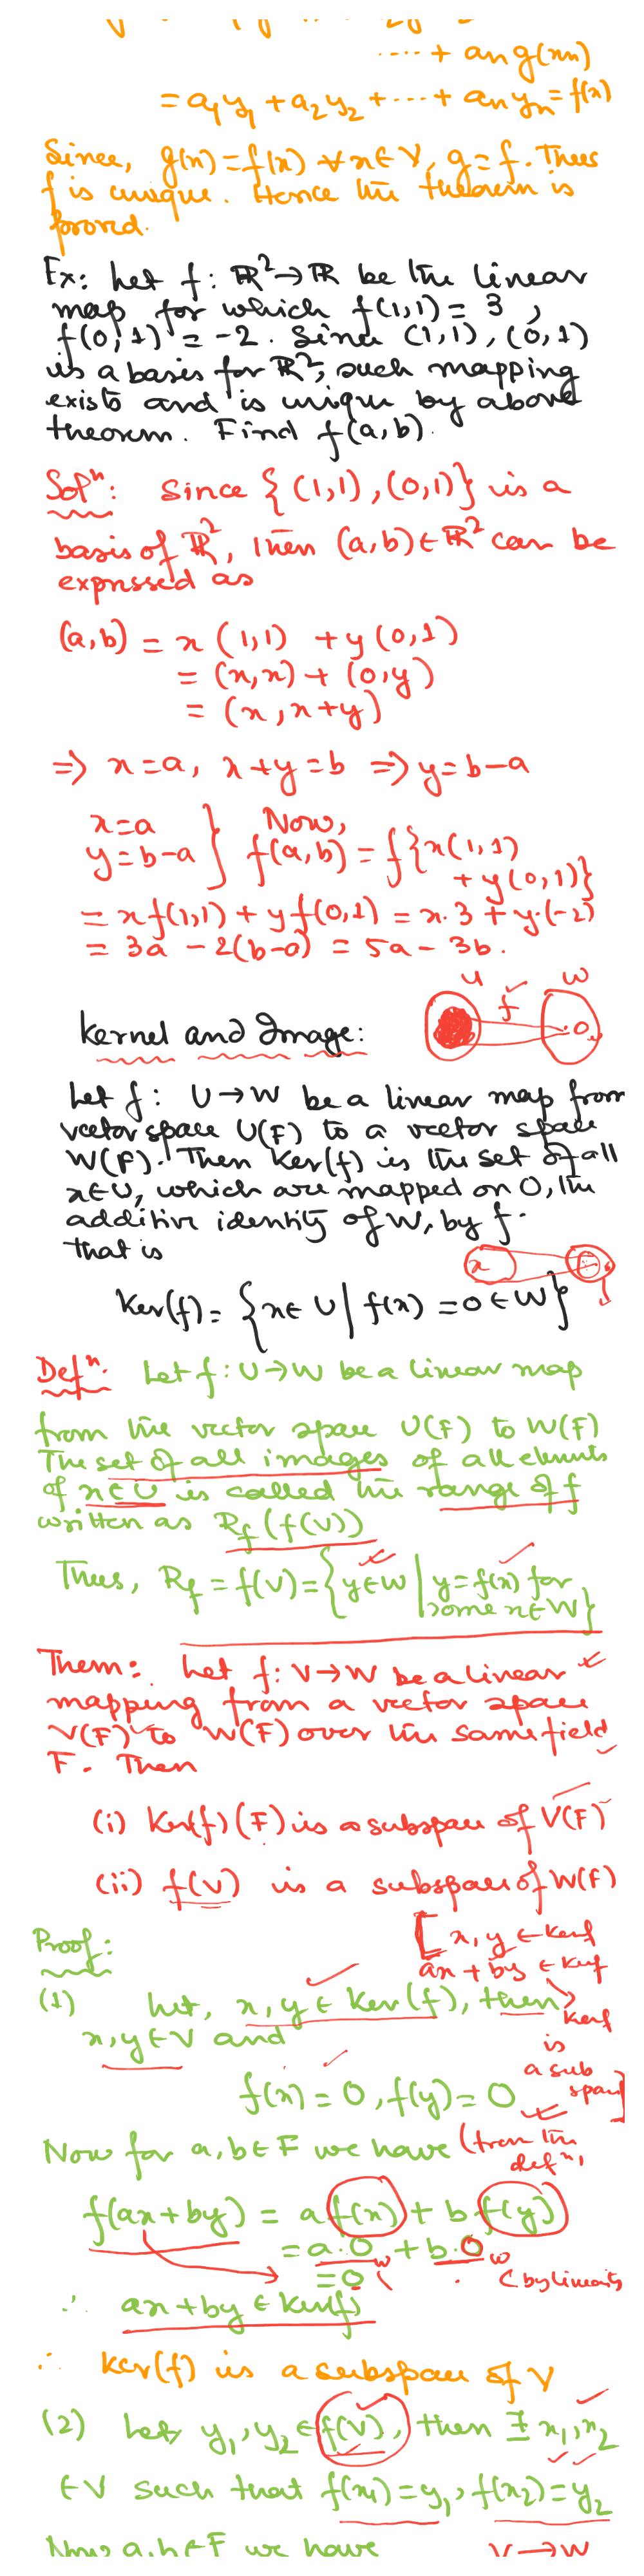 ····+ an g(xn)
= a1y1 + a2y2 +····+ anyn = f(x)
Since, g(x) = f(x) ∀ x ∈ V, g = f. Thus
f is unique. Hence the theorem is
proved.
Ex: Let f: ℝ² → ℝ be the linear
map for which f(1,1) = 3,
f(0,1) = -2. Since (1,1), (0,1)
is a basis for ℝ², such mapping
exists and is unique by above
theorem. Find f(a,b).
Solⁿ: Since {(1,1), (0,1)} is a
basis of ℝ², then (a,b) ∈ ℝ² can be
expressed as
(a,b) = x (1,1) + y (0,1)
= (x,x) + (0,y)
= (x, x+y)
⇒ x = a, x + y = b ⇒ y = b-a
x = a
y = b-a } Now,
f(a,b) = f{x(1,1)
+ y(0,1)}
= x f(1,1) + y f(0,1) = x·3 + y·(-2)
= 3a - 2(b-a) = 5a - 3b.
u f w
Kernel and Image: 0
Let f: U → W be a linear map from
vector space U(F) to a vector space
W(F). Then Ker(f) is the set of all
x ∈ U, which are mapped on 0, the
additive identity of W, by f.
that is
x
Ker(f) = {x ∈ U | f(x) = 0 ∈ W}
Defⁿ: Let f: U → W be a linear map
from the vector space U(F) to W(F)
The set of all images of all elements
of x ∈ U is called the range of f
written as Rf (f(U))
Thus, Rf = f(U) = {y ∈ W | y = f(x) for
some x ∈ W}
Them: Let f: V → W be a linear
mapping from a vector space
V(F) to W(F) over the same field
F. Then
(i) Ker(f)(F) is a subspace of V(F)
(ii) f(V) is a subspace of W(F)
Proof:
[x, y ∈ Kerf
ax + by ∈ Kerf
(1) Let, x, y ∈ Ker(f), then
x, y ∈ V and
Kerf
is
a sub
space]
f(x) = 0, f(y) = 0
Now for a, b ∈ F we have (from the
defⁿ)
f(ax+by) = a f(x) + b f(y)
= a·0w + b·0w
= 0 (by linearity
∴ ax + by ∈ Ker(f)
∴ Ker(f) is a subspace of V
(2) Let, y1, y2 ∈ f(V), then ∃ x1, x2
∈ V such that f(x1) = y1, f(x2) = y2
Now a, b ∈ F we have V → W